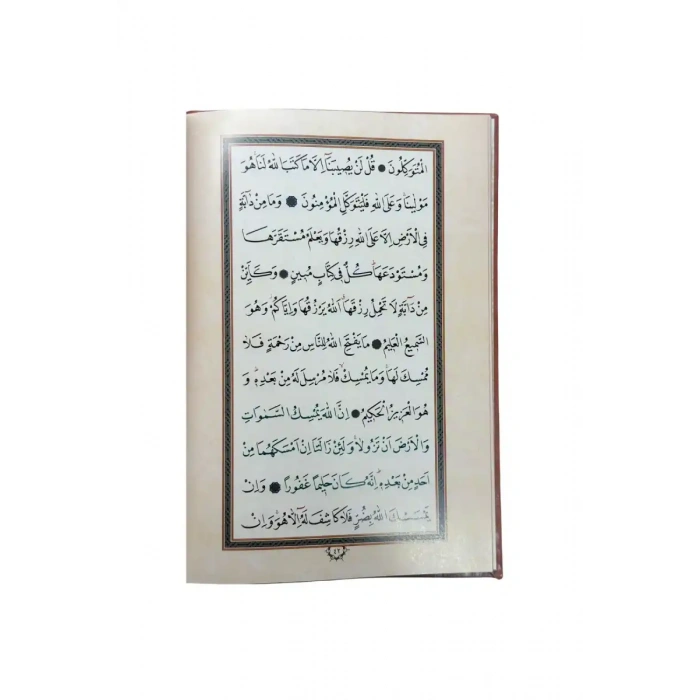 الْمُتَوَكِّلُونَ ● قُلْ لَنْ يُصِيبَنَٓا اِلَّا مَا كَتَبَ اللّٰهُ لَنَا هُوَ
مَوْلٰينَا وَ عَلَى اللّٰهِ فَلْيَتَوَكَّلِ الْمُؤْمِنُونَ ● وَ مَا مِنْ دَٓابَّةٍ
فِي الْاَرْضِ اِلَّا عَلَى اللّٰهِ رِزْقُهَا وَ يَعْلَمُ مُسْتَقَرَّهَا
وَ مُسْتَوْدَعَهَا كُلٌّ فِي كِتَابٍ مُبِينٍ ● وَ كَاَيِّنْ
مِنْ دَٓابَّةٍ لَا تَحْمِلُ رِزْقَهَا اَللّٰهُ يَرْزُقُهَا وَ اِيَّاكُمْ وَ هُوَ
السَّمِيعُ الْعَلِيمُ ● مَا يَفْتَحِ اللّٰهُ لِلنَّاسِ مِنْ رَحْمَةٍ فَلَا
مُمْسِكَ لَهَا وَ مَا يُمْسِكْ فَلَا مُرْسِلَ لَهُ مِنْ بَعْدِهِ وَ
هُوَ الْعَزِيزُ الْحَكِيمُ ● اِنَّ اللّٰهَ يُمْسِكُ السَّمٰوَاتِ
وَ الْاَرْضَ اَنْ تَزُولَا وَ لَئِنْ زَالَتَٓا اِنْ اَمْسَكَهُمَا مِنْ
اَحَدٍ مِنْ بَعْدِهِ اِنَّهُ كَانَ حَلِيمًا غَفُورًا ● وَ اِنْ
يَمْسَسْكَ اللّٰهُ بِضُرٍّ فَلَا كَاشِفَ لَهُٓ اِلَّا هُوَ وَ اِنْ
٤٢